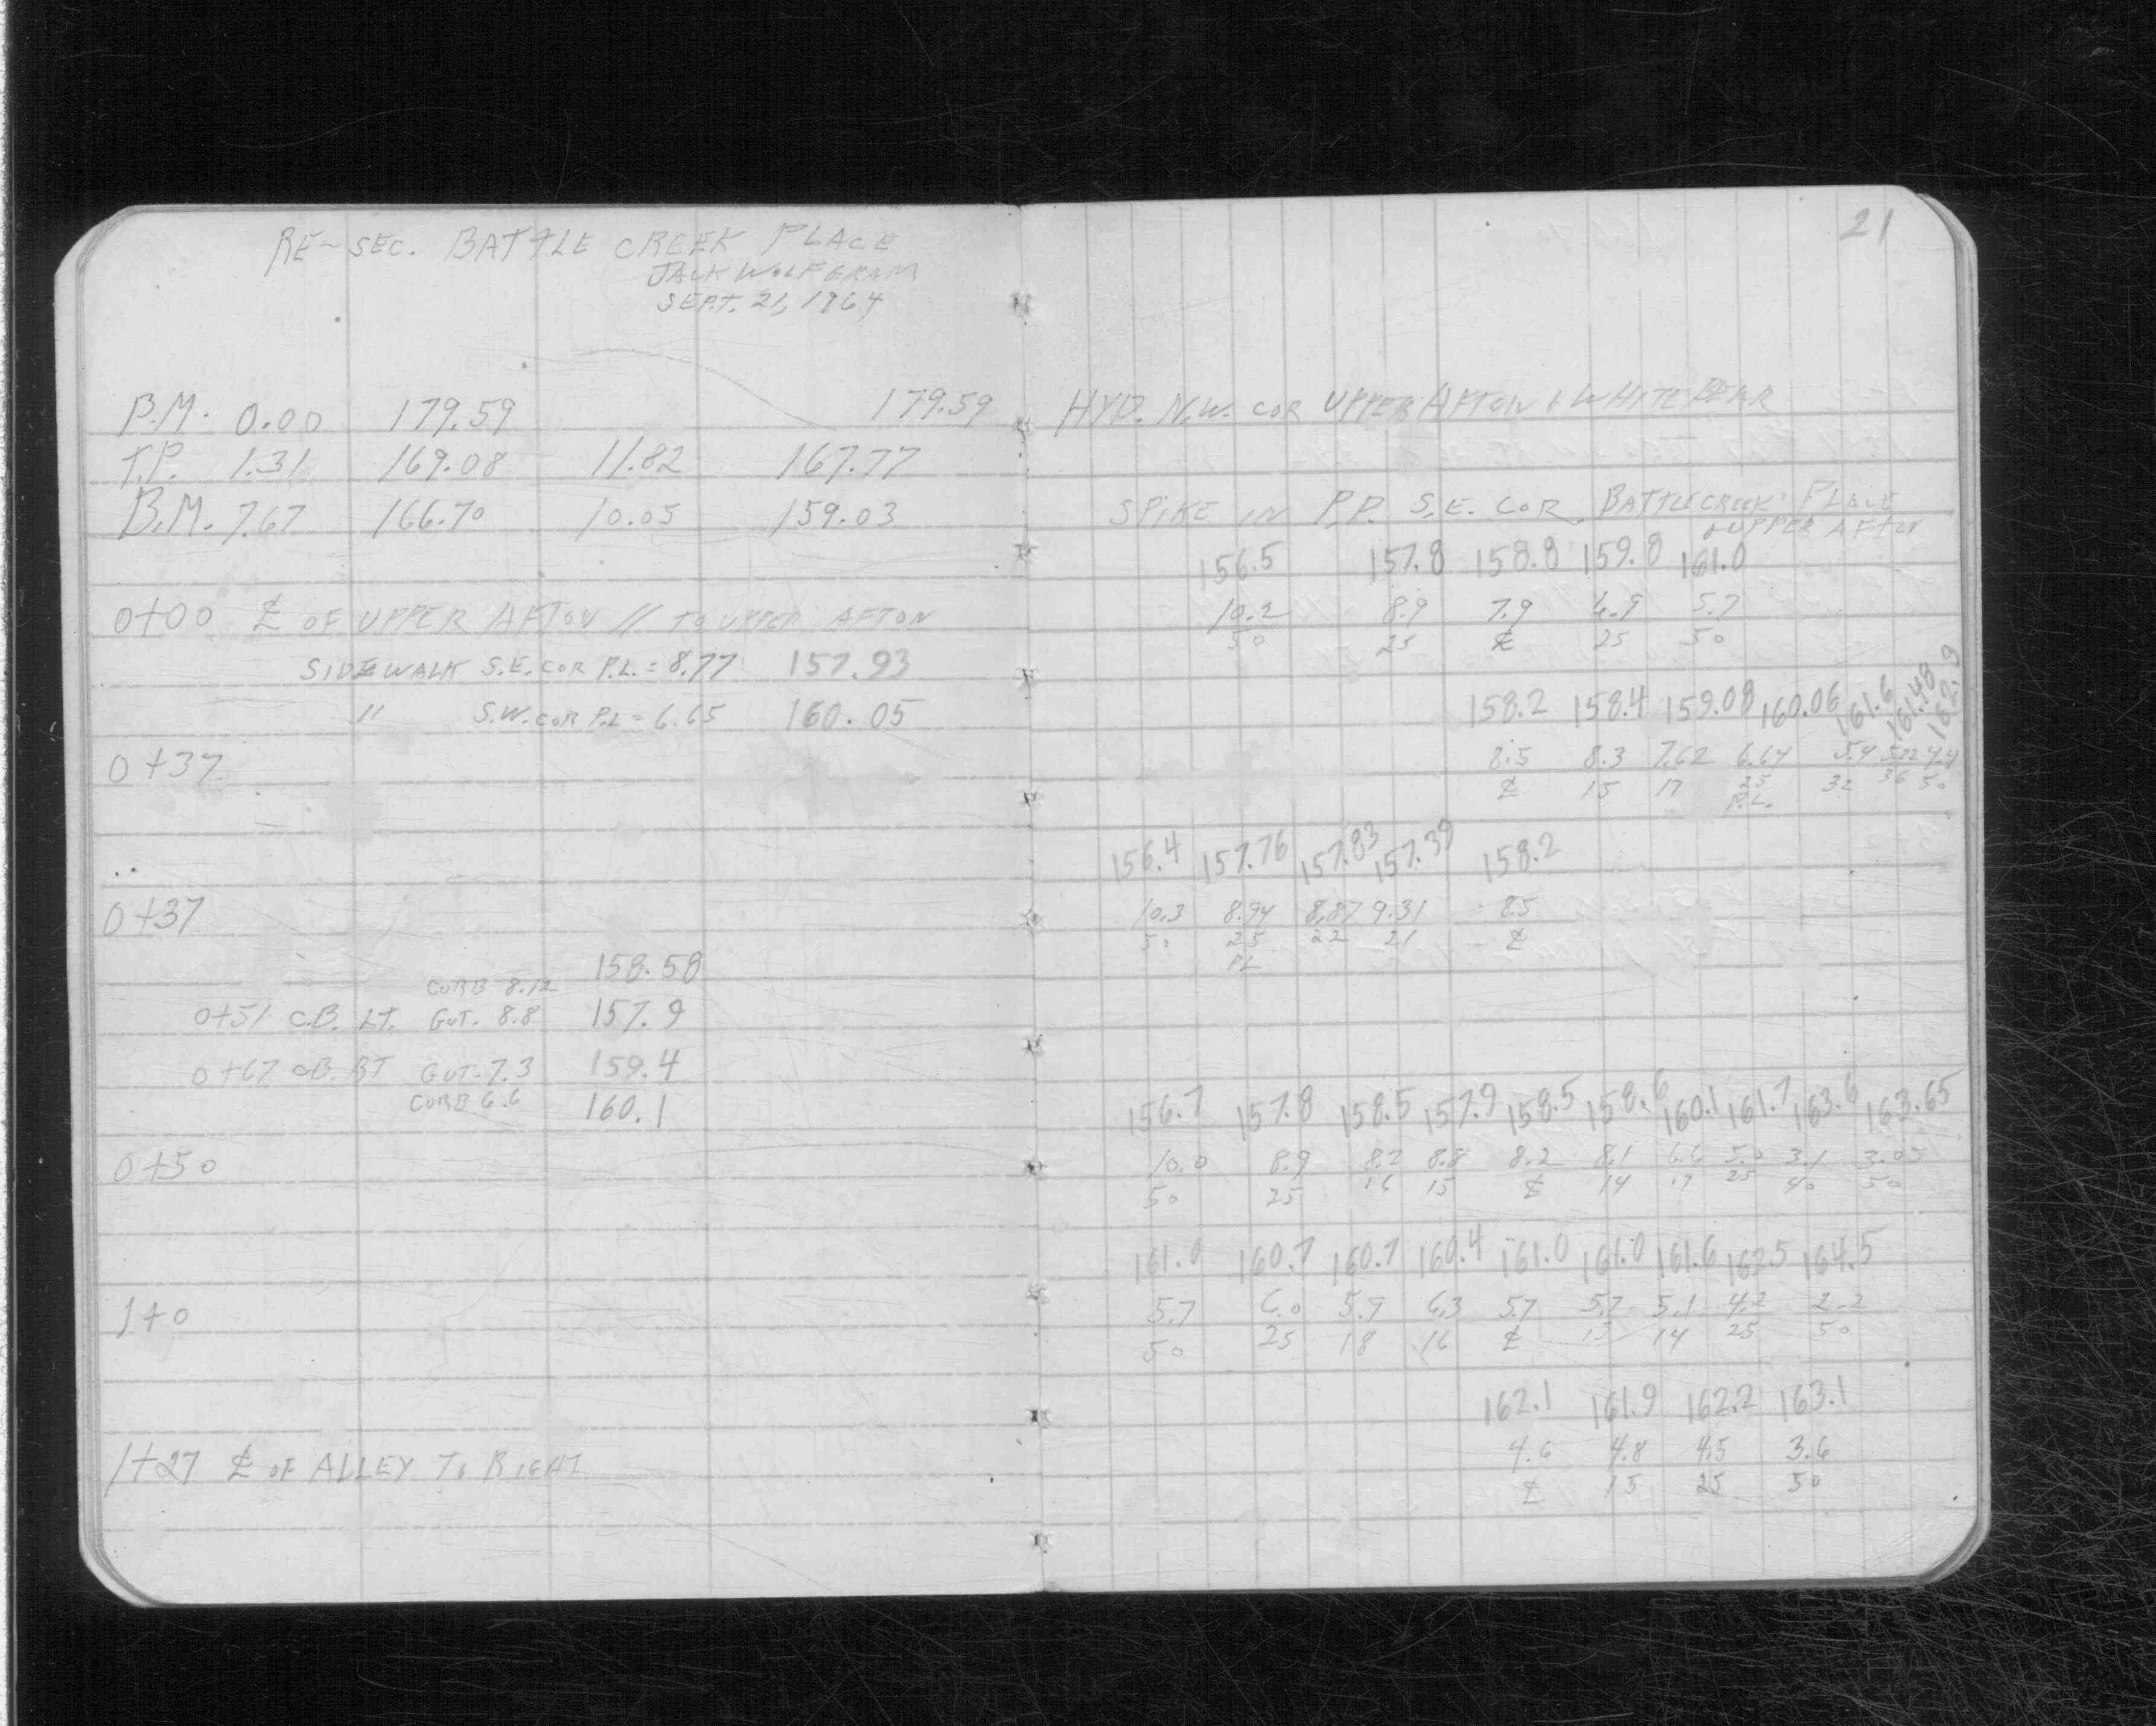 RE-SEC. BATTLE CREEK PLACE
JACK WOLFGRAM
SEPT. 21, 1964
B.M. 0.00 179.59 179.59
T.P. 1.31 169.08 11.82 167.77
B.M. 7.67 166.70 10.05 159.03
0+00 ℄ OF UPPER AFTON // TO UPPER AFTON
SIDEWALK S.E. COR P.L. = 8.77 157.93
" S.W. COR P.L = 6.65 160.05
0+37
0+37
158.58
CURB 8.12
0+51 C.B. LT. GUT. 8.8 157.9
0+67 C.B. RT GUT. 7.3 159.4
CURB 6.6 160.1
0+50
1+0
1+27 ℄ OF ALLEY TO RIGHT
21
HYD. N.W. COR UPPER AFTON & WHITE BEAR
SPIKE IN P.P. S.E. COR. BATTLECREEK PLACE
& UPPER AFTON
156.5 157.8 158.8 159.8 161.0
10.2 8.9 7.9 6.9 5.7
50 25 ℄ 25 50
158.2 158.4 159.08 160.06 161.6 161.48 162.3
8.5 8.3 7.62 6.64 5.4 5.22 4.4
℄ 15 17 25 32 36 50
P.L.
156.4 157.76 157.83 157.39 158.2
10.3 8.94 8.87 9.31 8.5
50 25 22 21 ℄
PL
156.7 157.8 158.5 157.9 158.5 158.6 160.1 161.7 163.6 163.65
10.0 8.9 8.2 8.8 8.2 8.1 6.6 5.0 3.1 3.05
50 25 16 15 ℄ 14 17 25 40 50
161.0 160.7 160.7 160.4 161.0 161.0 161.6 162.5 164.5
5.7 6.0 5.9 6.3 5.7 5.7 5.1 4.2 2.2
50 25 18 16 ℄ 13 14 25 50
162.1 161.9 162.2 163.1
4.6 4.8 4.5 3.6
℄ 15 25 50